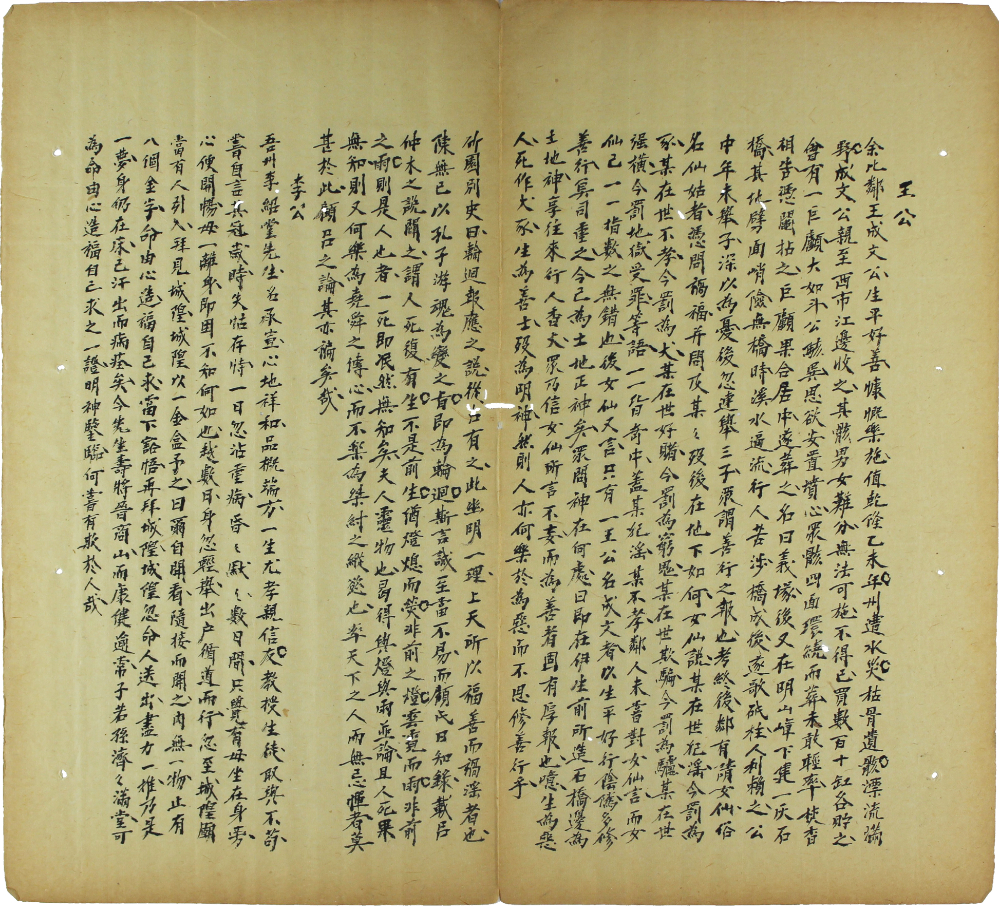 王公
余比鄰王成文公生平好善慷慨樂施值乾隆乙未年州遭水災枯骨遺骸漂流滿
野成文公親至西市江邊收之其骸男女難分無法可施不得已買數百十缸谷貯之
會有一巨顱大如斗公駭異思欲安置墳心眾骸四面環繞而葬未敢輕率徒杳
相告憑鬮拈之巨顱果合居中遂葬之名曰義塚後又在明山嶂下建一灰石
橋其處劈面峭險無橋時溪水逼流行人苦涉橋成後遂歌砥柱人利賴之公
中年未舉子深以為憂後忽連舉三子眾謂善行之報也考終後鄰有請女仙俗
名仙姑者憑問禍福并問及某々歿後在地下如何女仙說某在世犯淫今罰為
豕某在世不孝今罰為犬某在世好賭今罰為窮鬼某在世欺騙今罰為驢某在世
强橫今罰地獄受罪等語一一皆奇中蓋某犯淫某不孝鄰人未嘗對女仙言而女
仙已一一指數之無錯也後女仙又言只有一王公名成文者以生平好行陰隲多修
善行冥司重之今已為土地正神矣眾問神在何處曰即在伊生前所造石橋邊為
土地神享往來行人香火眾乃信女仙所言不妄而為善者固有厚報也噫生為惡
人死作犬豕生為善士歿為明神然則人亦何樂於為惡而不思修善行乎
斫園別史曰輪迴報應之說從古有之此幽明一理上天所以福善而禍淫者也
陳無已以孔子游魂為變之旨即為輪迴斯言誠至當不易而顧氏日知錄載呂
仲木之說謂之謂人死復有生不是前生猶燈熄而熒非前之燈雲霓而雨非前
之雨則是人也者一死即冺然無知矣夫人靈物也曷得與燈與雨並論且人死果
無知則又何樂為堯舜之傳心而不樂為桀紂之縱慾也率天下之人而無忌憚者莫
甚於此顧呂之論其亦謫矣哉
李公
吾州李紹堂先生名承宣心地祥和品概端方一生尤孝親信友教授生徒取與不苟
嘗自言其冠歲時失怙存恃一日忽沾重病昏々默々數日間只覺有母坐在身旁
心便開暢母一離身即困不知何如也越數日身忽輕舉出户循道而行忽至城隍廟
當有人引入拜見城隍城隍以一金盒予之曰爾自開看隨接而開之內無一物止有
八個金字命由心造福自己求當下豁悟再拜城隍城隍忽命人送出盡力一推乃是
一夢身仍在床已汗出而病痊矣今先生壽將晉商山而康健逾常子若孫濟々滿堂可
為命由心造福自己求之一證明神鑒臨何嘗有欺於人哉